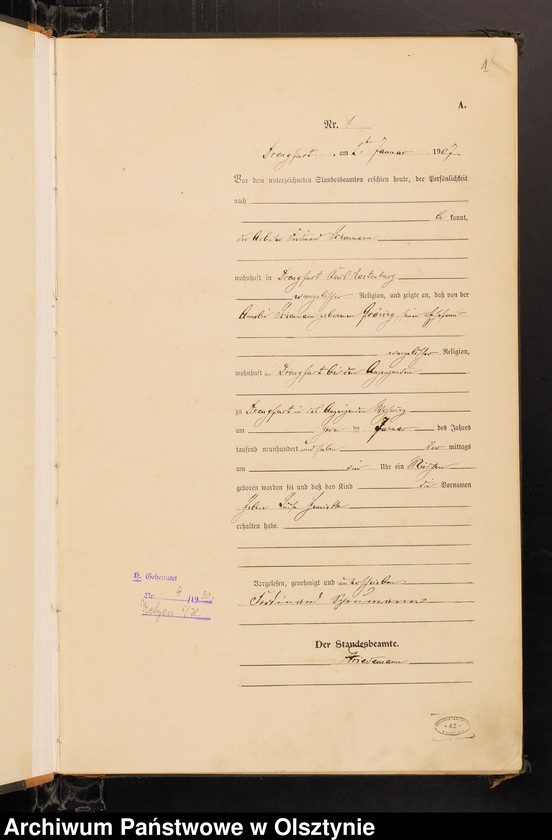 1
A.
Nr. 1
Drengfurt am Januar 1907
Vor dem unterzeichneten Standesbeamten erschien heute, der Persönlichkeit
nach
be kannt,
der Arbeiter Ferdinand Schumann
wohnhaft in Drengfurt Rastenburg
evangelischer Religion, und zeigte an, daß von der
Amalie Schumann geborenen seiner Ehefrau
evangelischer Religion,
wohnhaft in Drengfurt bei dem Anzeigenden
zu Drengfurt in des Anzeigenden Wohnung
am Januar des Jahres
tausend neunhundert und sieben Vor mittags
um Uhr ein Mädchen
geboren worden sei und daß das Kind die Vornamen
Henriette
erhalten habe.
Vorgelesen, genehmigt und unterschrieben
Ferdinand Schumann
Der Standesbeamte.
H. Geheiratet
Nr. 9 /19 30.
42
Archiwum Państwowe w Olsztynie